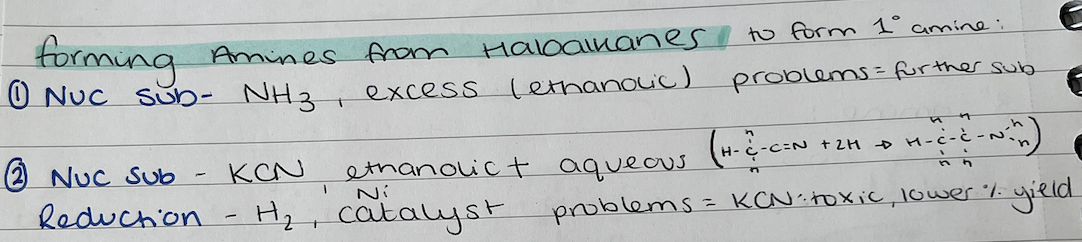 forming Amines from Haloalkanes to form 1° amine:
① Nuc sub- NH3, excess (ethanolic) problems = further sub
② Nuc sub - KCN, ethanolic + aqueous (H-C-C=N + 2H → H-C-C-N
H H H H H H H H
Reduction - H2, Ni catalyst problems = KCN: toxic, lower % yield